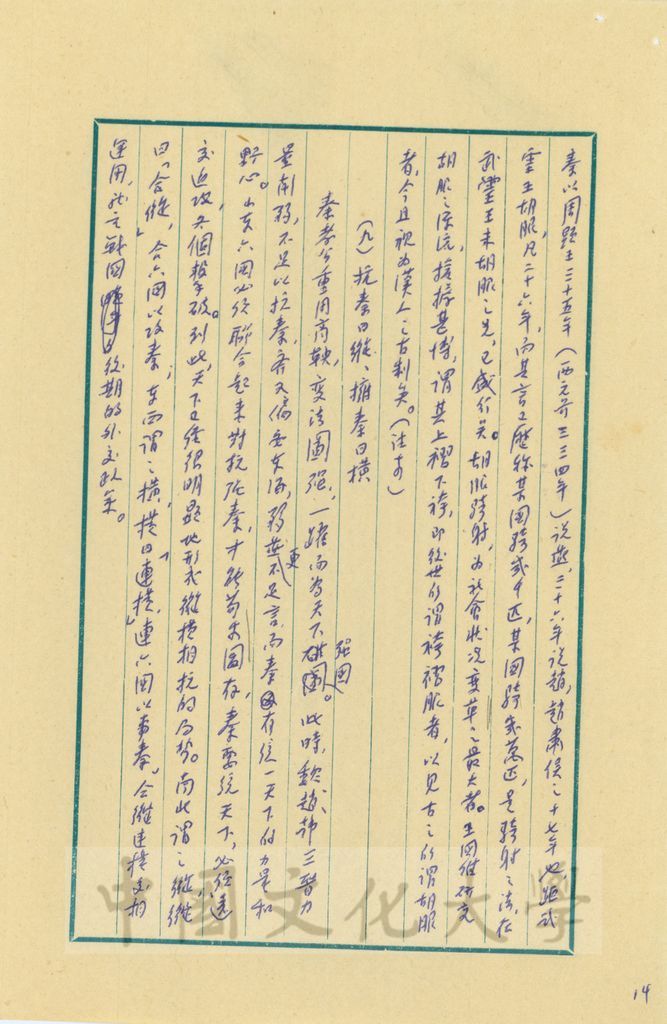 秦以周顯王三十五年(西元前三三四年)說燕,二十六年說趙,趙肅侯之十七年也,距武
靈王胡服,凡二十六年,而其言已歷稱某國騎或千匹,某國騎或萬匹,是騎射之法,在
武靈王未胡服之先,已盛行矣。胡服騎射,為社會狀況變革之最大者。王國維研究
胡服之源流,謂其上褶下袴,即後世所謂袴褶服者,以見古之所謂胡服
者,今且視為漢人之古制矣。(註
(九)抗秦曰縱、擁秦曰橫
秦孝公重用商鞅,變法圖强,一躍而為天下强國。此時,魏、趙、韓三晉力
量削弱,不足以抗秦,齊又偏安東海,弱燕更不足言,而秦有統一天下的力量和
野心。山東六國必須聯合起來對抗强秦,才能苟安圖存,秦要統一天下,必須遠
交近攻,各個擊破。到此,天下已經很明顯地形成縱橫相抗的局勢。南北謂之縱,縱
曰「合縱」,合六國以攻秦;東西謂之橫,橫曰「連橫」,連六國以事秦。合縱連橫互相
運用,就是戰國後期的外交政策。
14
中國文化大學